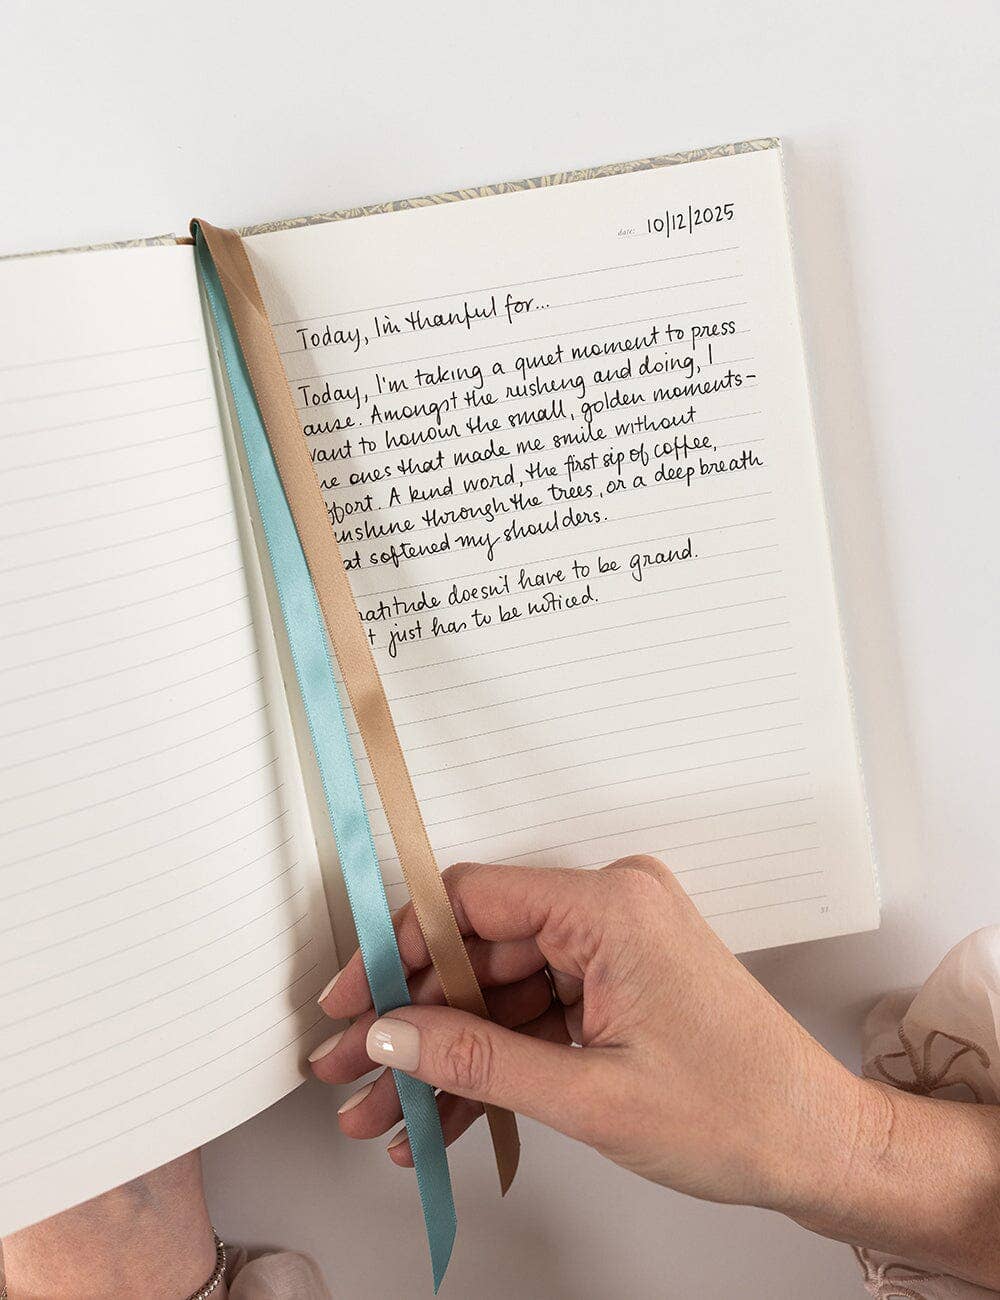 date: 10/12/2025
Today, I'm thankful for...
Today, I'm taking a quiet moment to press
ause. Amongst the rushing and doing, I
want to honour the small, golden moments-
he ones that made me smile without
ffort. A kind word, the first sip of coffee,
unshine through the trees, or a deep breath
at softened my shoulders.
ratitude doesn't have to be grand.
t just has to be noticed.